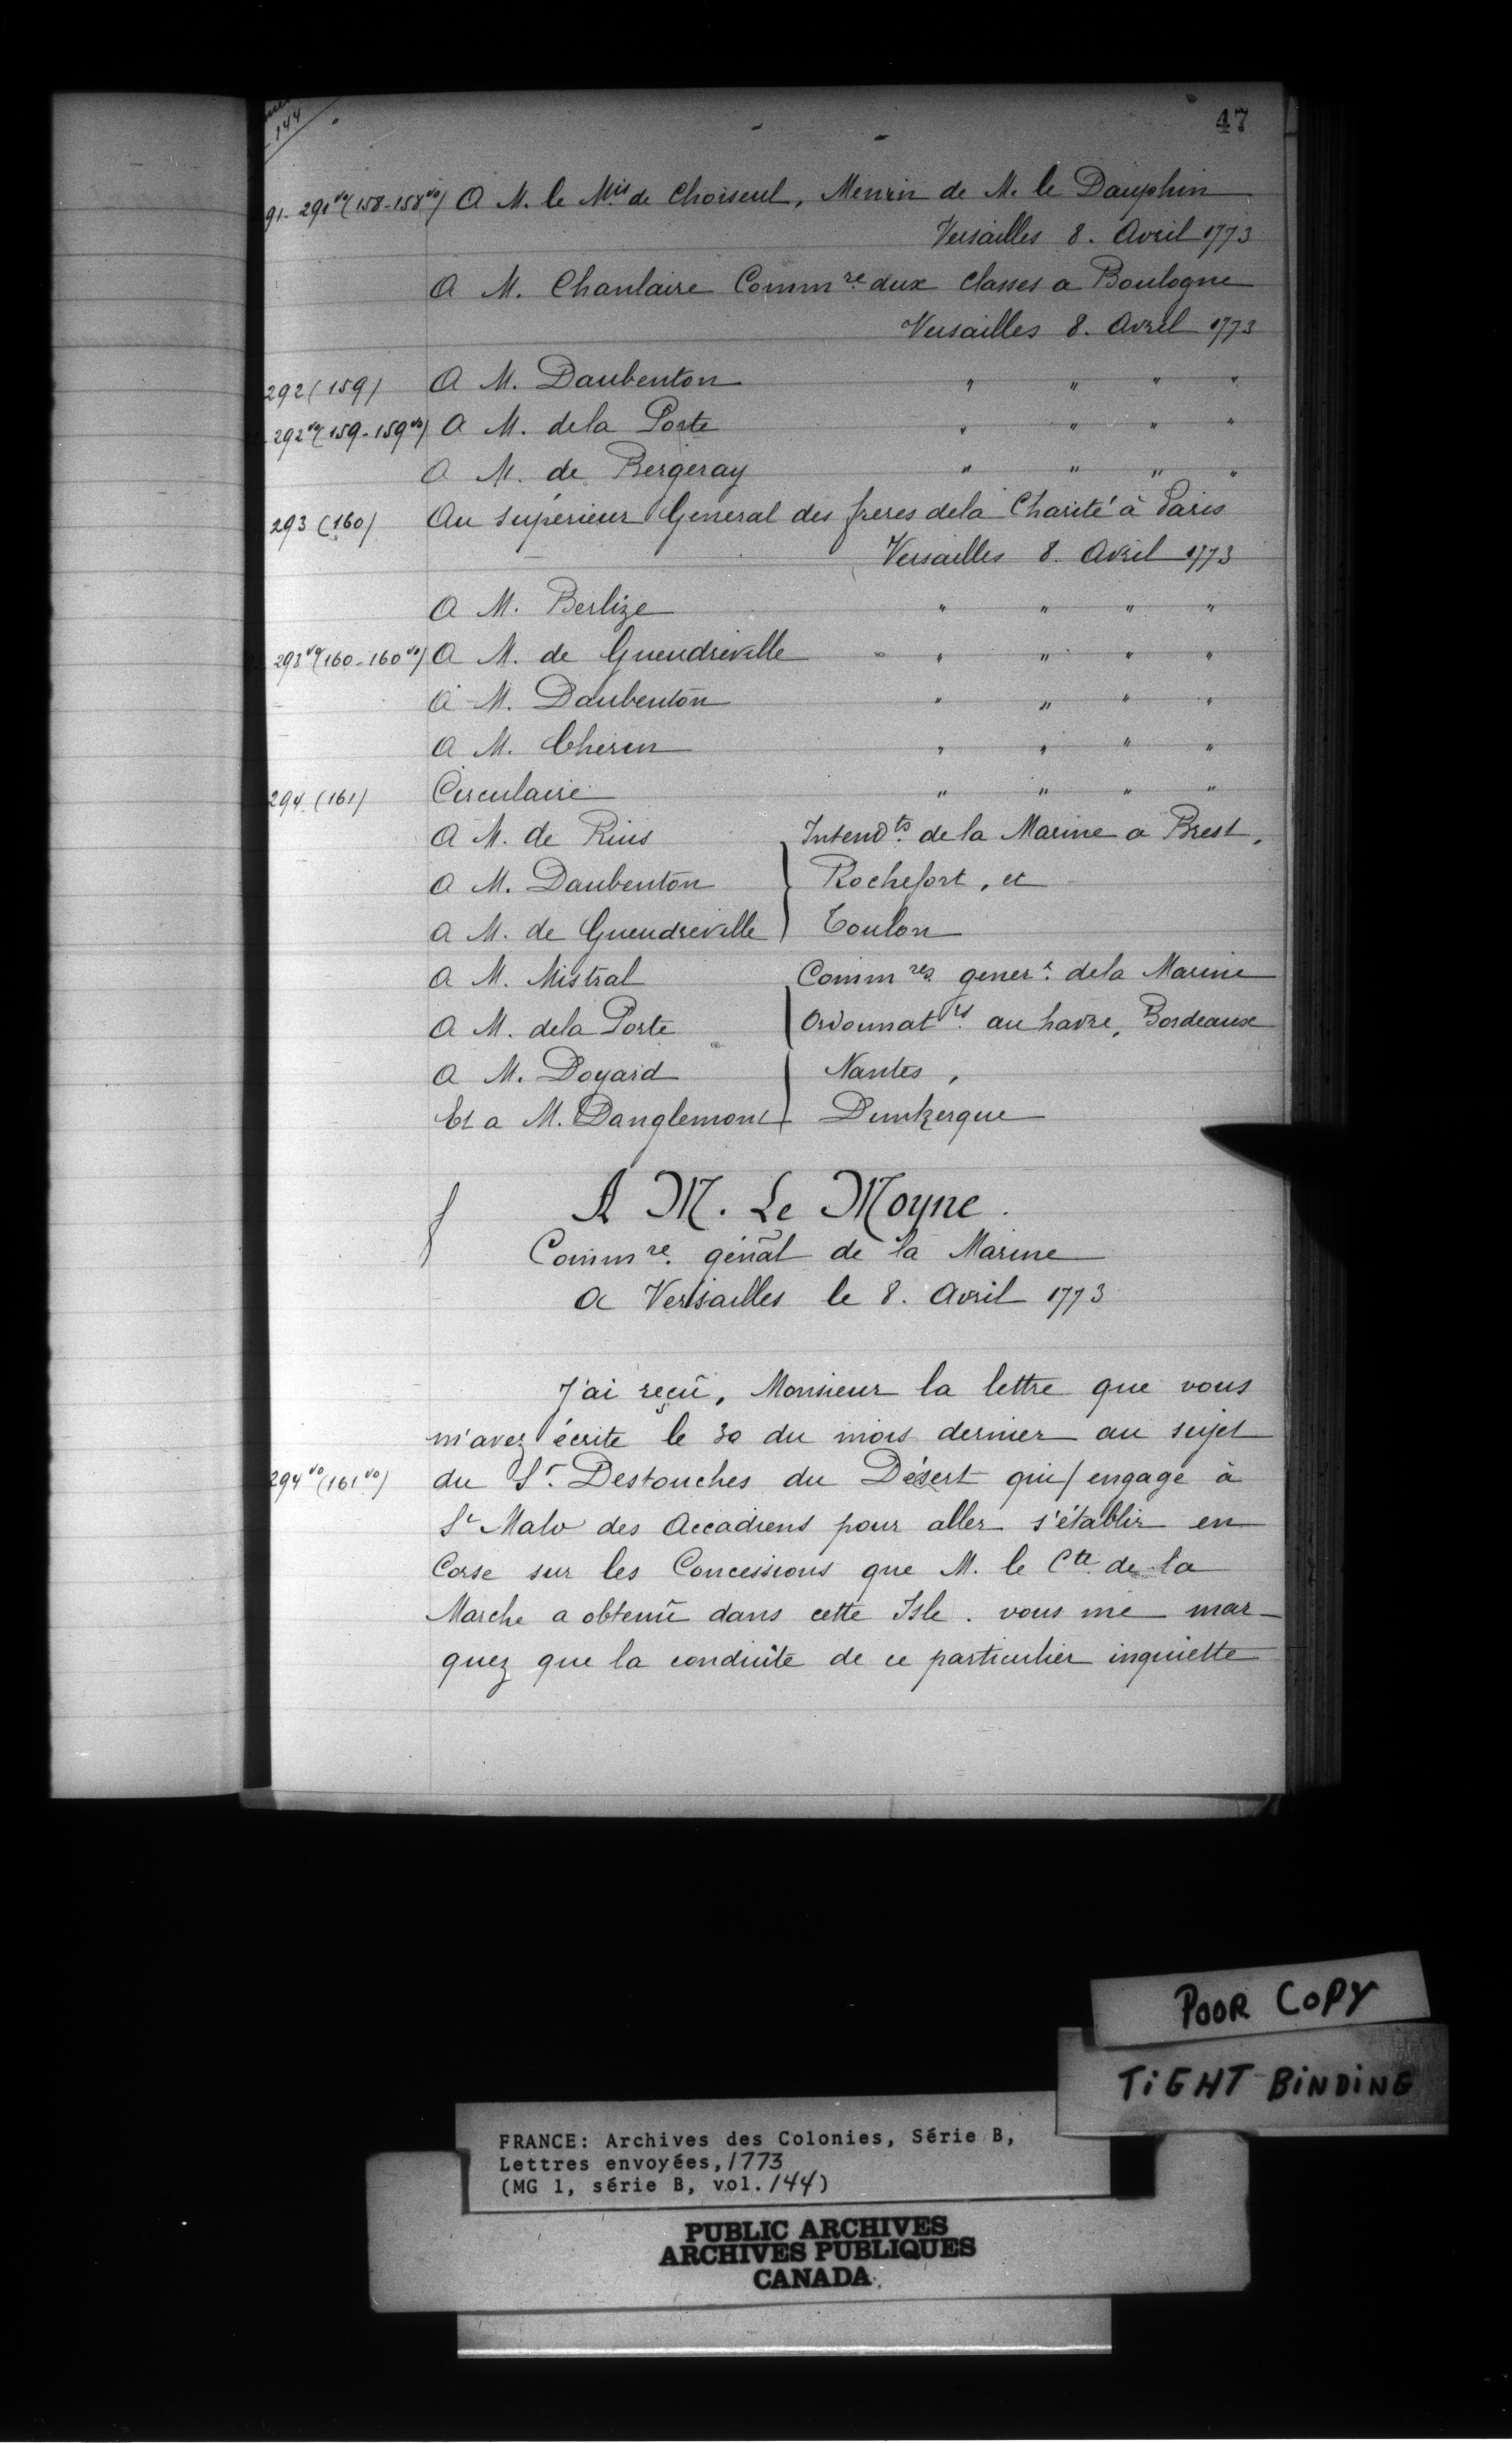 144
47
91-291vo (158-158vo) A M. le Mis de Choiseul, Menin de M. le Dauphin
Versailles 8. Avril 1773
A M. Chanlaire Commre. dux Classes a Boulogne
Versailles 8. Avril 1773
292 (159) A M. Daubenton " " " "
292vo (159-159vo) A M. dela Porte " " " "
A M. de Bergeray " " " "
293 (160) Au Supérieur General des freres dela Charité à Paris
Versailles 8. Avril 1773
A M. Berlize " " " "
293vo (160-160vo) A M. de Gueudreville " " " "
A M. Daubenton " " " "
A M. Cherin " " " "
294 (161) Circulaire " " " "
A M. de Ruis Intendts. de la Marine a Brest,
A M. Daubenton Rochefort, et
A M. de Gueudreville Toulon
A M. Mistral Commres. generx. dela Marine
A M. dela Porte Ordonnatrs. au havre, Bordeaux
A M. Doyard Nantes,
Et a M. Danglemont Dunkerque
A M. Le Moyne.
Commre. génãl de la Marine
A Versailles le 8. Avril 1773
J'ai reçû, Monsieur la lettre que vous
m'avez écrite le 30 du mois dernier au sujet
294vo (161vo) du Sr. Destouches du Désert qui / engage à
St Malo des Accadiens pour aller s'établir en
Corse sur les Concessions que M. le Cte de la
Marche a obtenû dans cette Isle. vous me mar-
quez que la conduite de ce particulier inquiette
POOR COPY
TIGHT BINDING
FRANCE: Archives des Colonies, Série B,
Lettres envoyées, 1773
(MG 1, série B, vol. 144)
PUBLIC ARCHIVES
ARCHIVES PUBLIQUES
CANADA